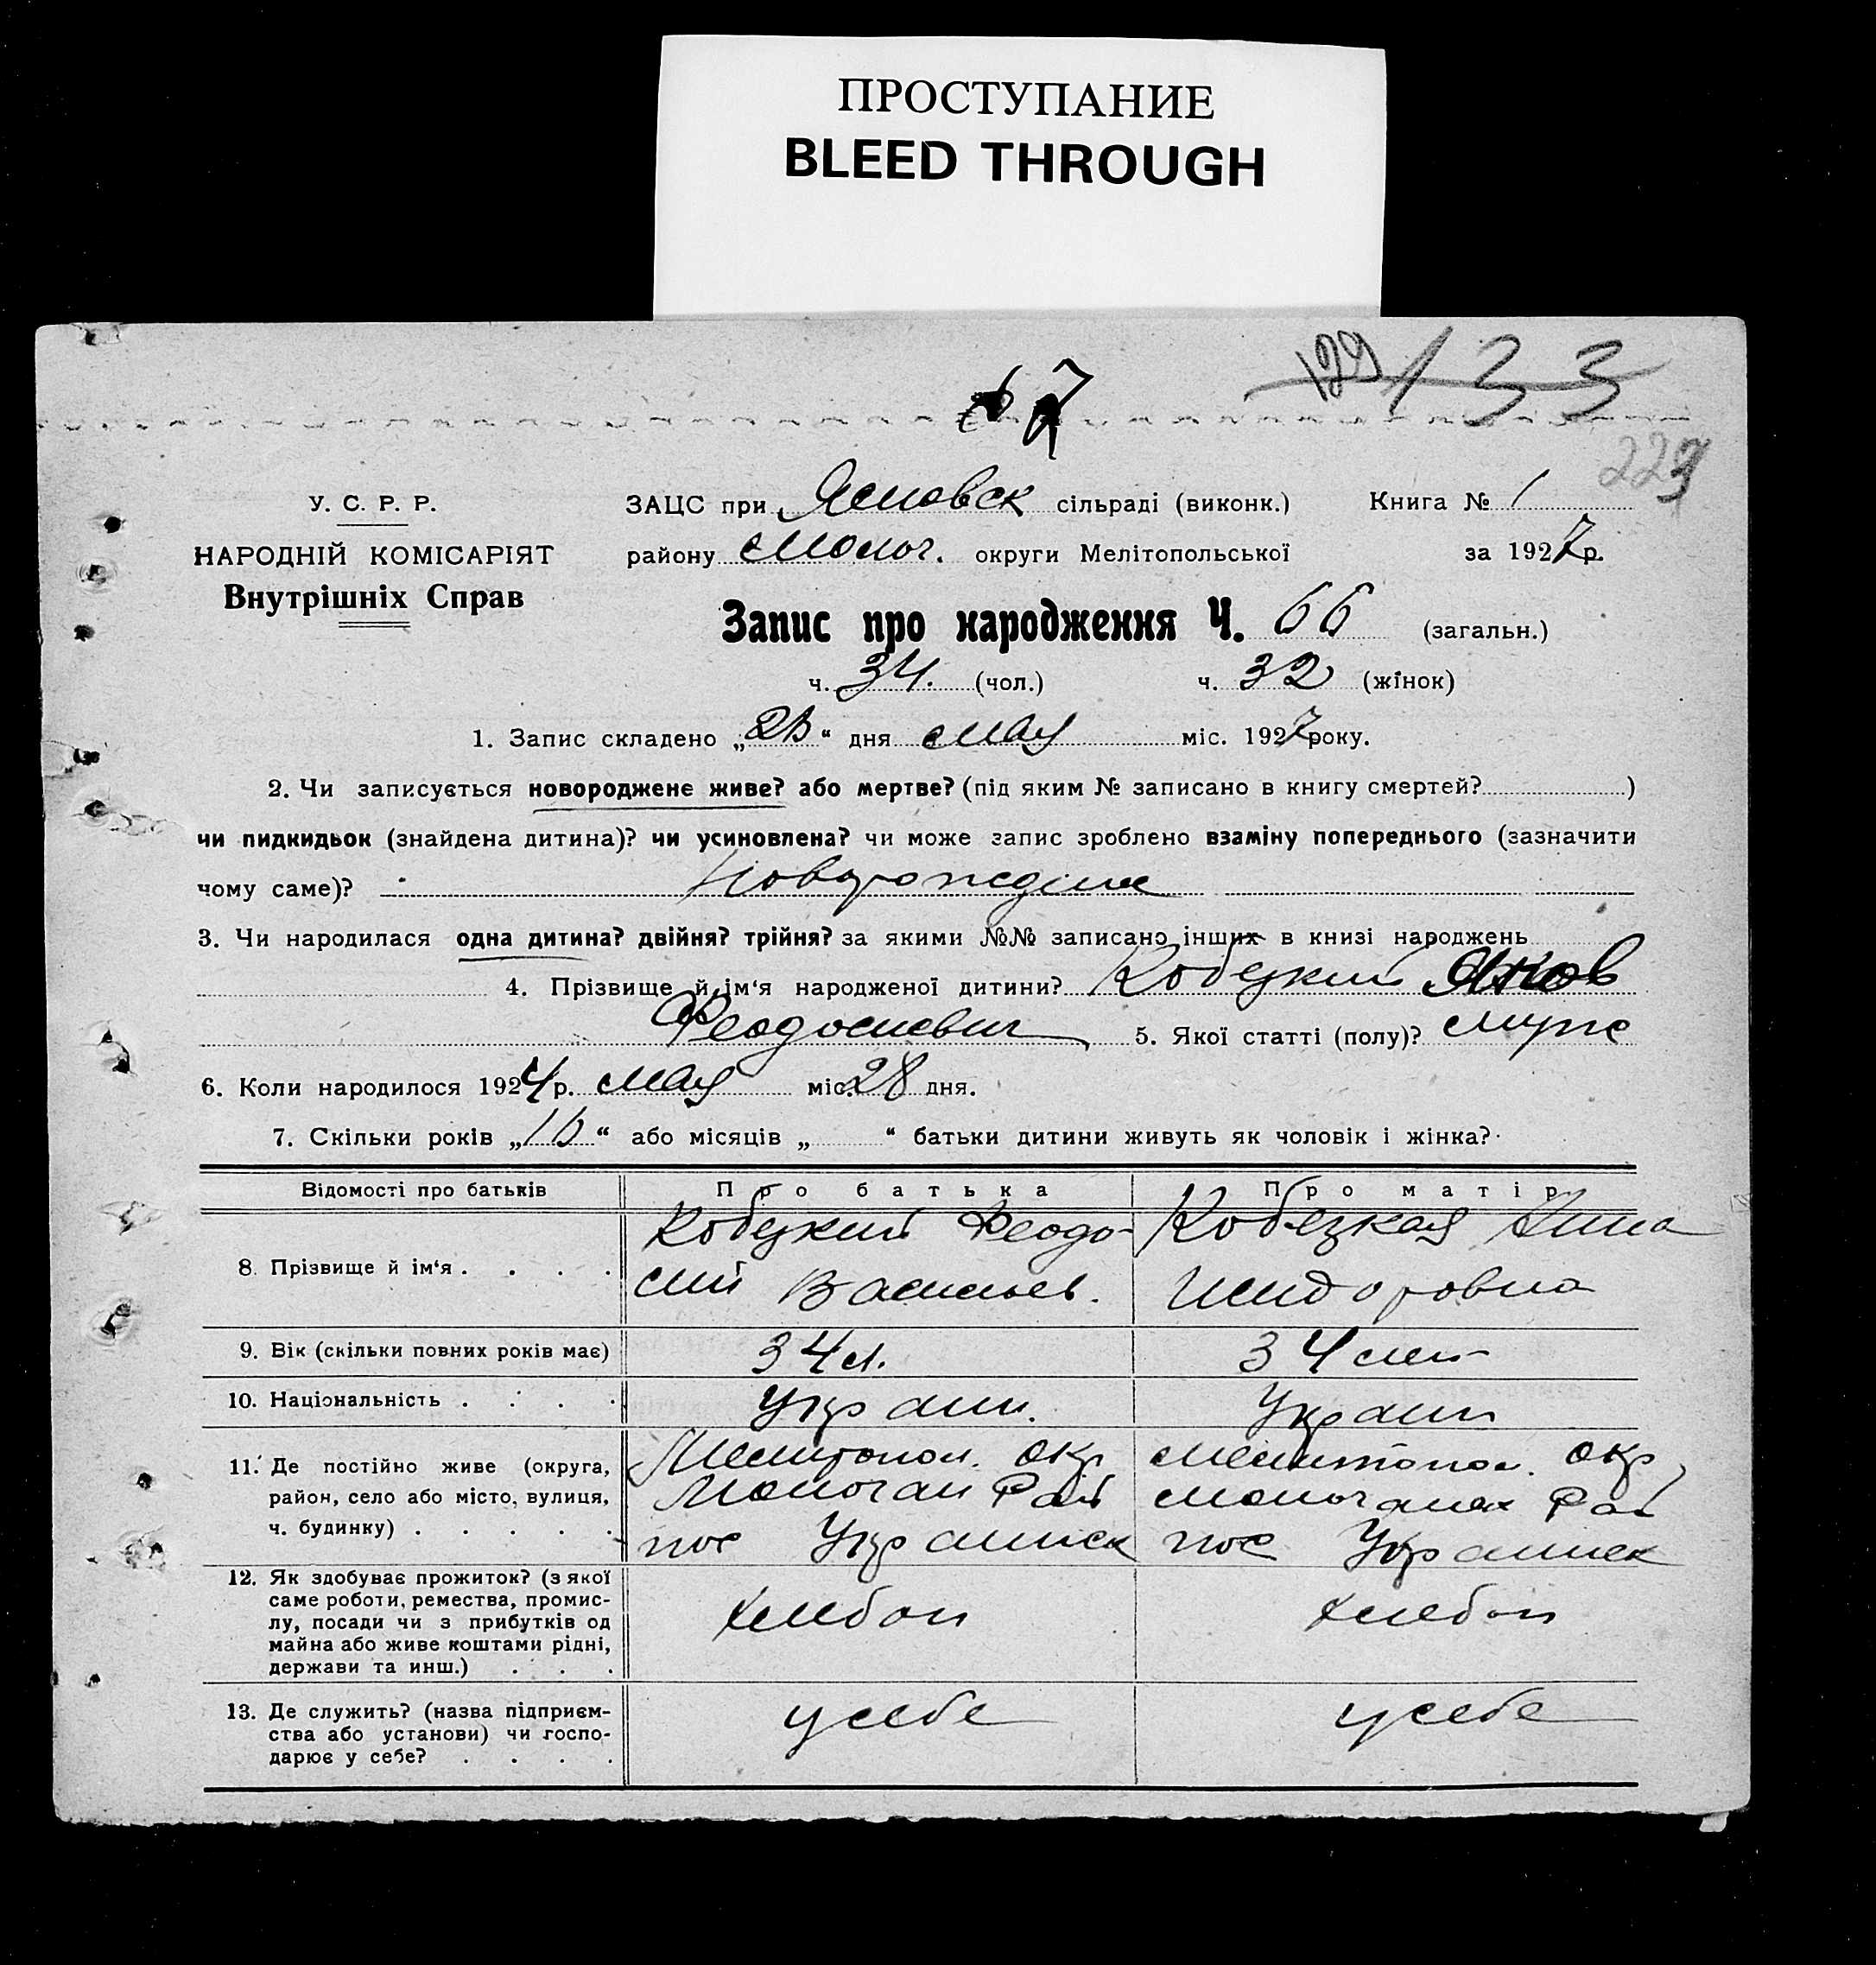 ПРОСТУПАНИЕ
BLEED THROUGH
129 133
7
229
У. С. Р. Р.
НАРОДНІЙ КОМІСАРІЯТ
Внутрішніх Справ
ЗАЦС при Ясновск сільраді (виконк.) Книга № 1
району Молоч. округи Мелітопольської за 1927 р.
Запис про народження Ч. 66 (загальн.)
ч. 34. (чол.) ч. 32 (жінок)
1. Запис складено „ “ дня мая міс. 1927 року.
2. Чи записується новороджене живе? або мертве? (під яким № записано в книгу смертей? )
чи пидкидьок (знайдена дитина)? чи усиновлена? чи може запис зроблено взаміну попереднього (зазначити
чому саме)?
3. Чи народилася одна дитина? двійня? трійня? за якими №№ записано інших в книзі народжень
4. Прізвище й ім‘я народженої дитини? Кобецкий Яков
Феодосиевич 5. Якої статті (полу)? муж
6. Коли народилося 1924 р. мая міс. 28 дня.
7. Скільки років „ “ або місяців „ “ батьки дитини живуть як чоловік і жінка?
Відомості про батьків Про батька Про матір
8. Прізвище й ім‘я . . . . Кобецкий Феодо- Кобецкая Анна
сий Васильев. Исидоровна
9. Вік (скільки повних років має) 34 л. 34 лет
10. Національність . . . . Украин. Украин
11. Де постійно живе (округа, Мелитопол. окр мелитопол. окр
район, село або місто, вулиця, Молочан Рай молочанск Рай
ч. будинку) . . . . . пос Украинск пос Украинск
12. Як здобуває прожиток? (з якої
саме роботи, ремества, промис-
лу, посади чи з прибутків од хлебоп хлебоп
майна або живе коштами рідні,
держави та инш.) . . .
13. Де служить? (назва підприєм-
ства або установи) чи госпо- у себе у себе
дарює у себе? . . . .